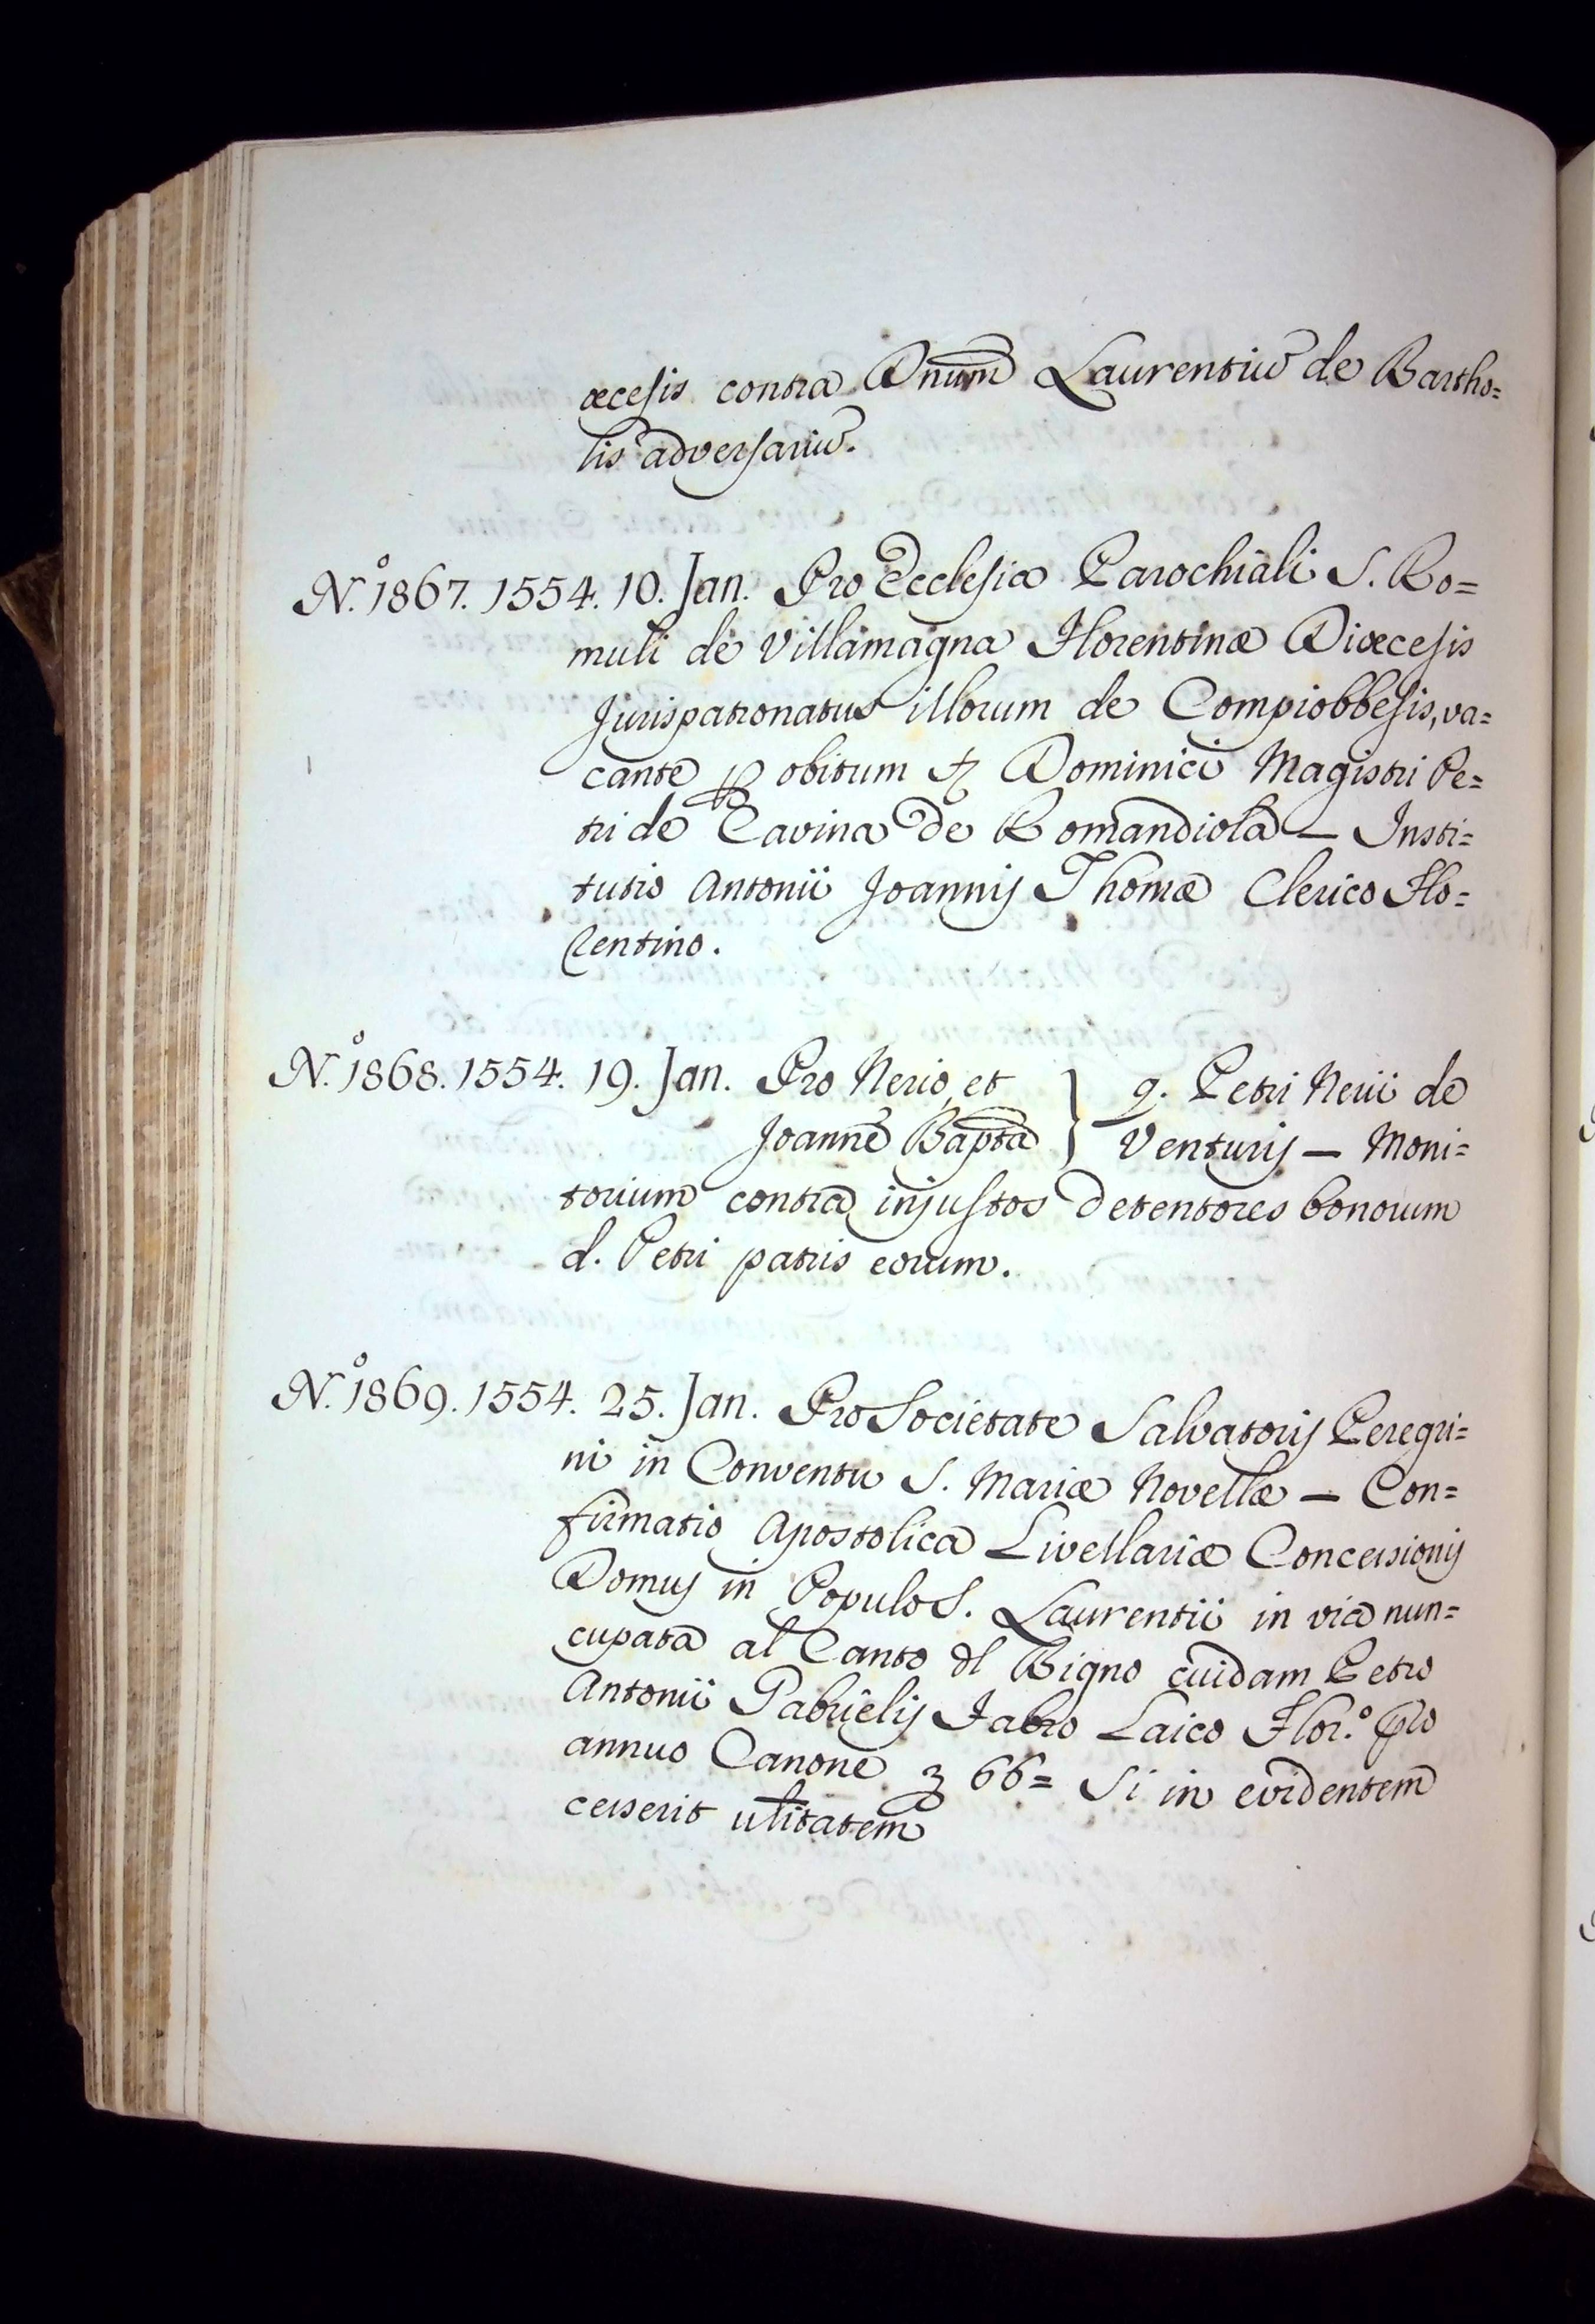 œcesis contra Dnum̄ Laurentiū de Bartho=
lis adversariū.
N.º 1867. 1554. 10. Jan. Pro Ecclesia Parochiali S. Ro=
muli de Villamagna Florentinæ Diœcesis
Jurispatronatus illorum de Compiobbesis, va=
cante ꝑ obitum Dominici Magistri Pe=
tri de Cavina de Romandiola — Insti=
tutio Antonii Joannis Thomæ Clerico Flo=
rentino.
N.º 1868. 1554. 19. Jan. Pro Nerio, et } q. Petri Nerii de
Joannē Baptā } Venturis — Moni=
torium contra injustos detentores bonorum
d. Petri patris eorum.
N.º 1869. 1554. 25. Jan. Pro Societate Salvatoris Peregri=
ni in Conventu S. Mariæ Novellæ — Con=
firmatio Apostolica Livellariæ Concessionis
Domus in Populo S. Laurentii in via nun=
cupata al Canto dl Bigno cuidam Petro
Antonii Gabrielis Fabro Laico Flor.º pro
annuo Canone 66= Si in evidentem
cesserit ulitatem